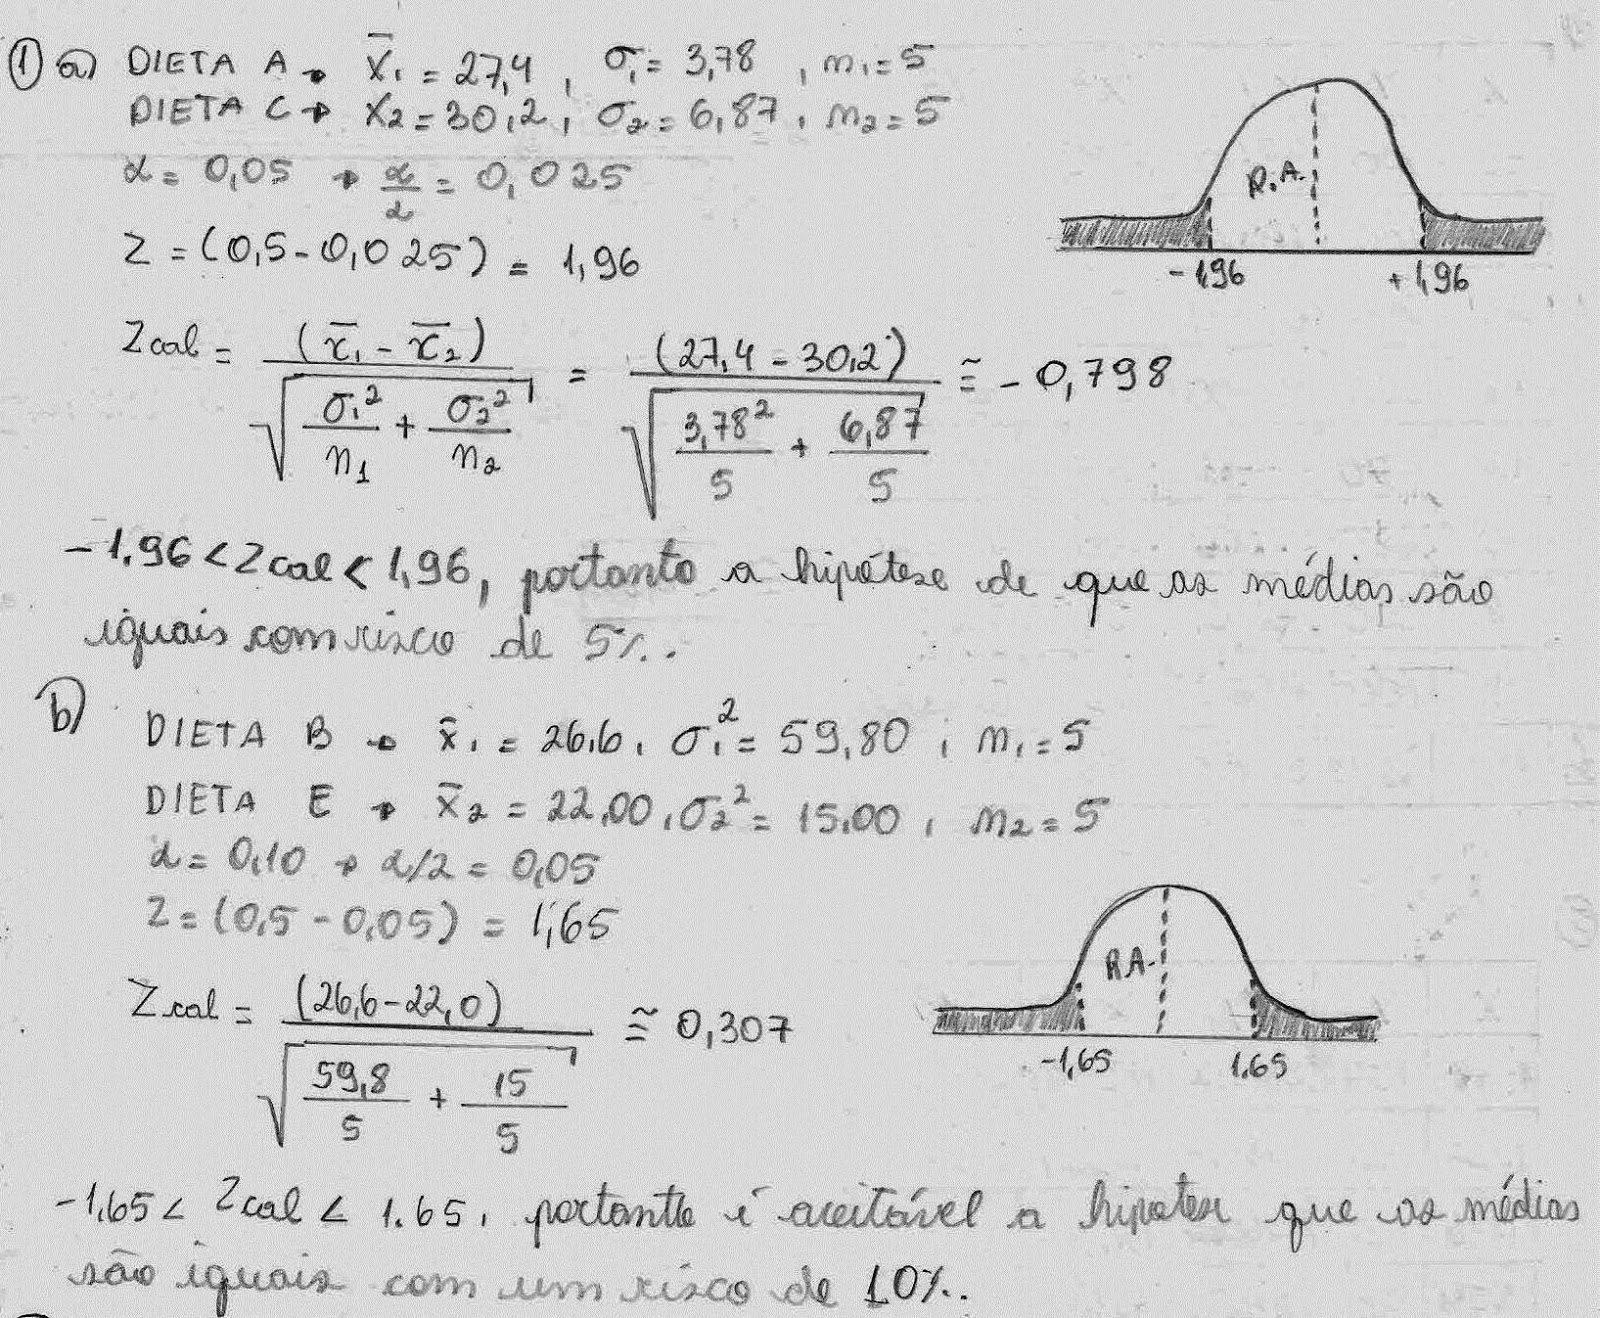 ① a) DIETA A → x̄₁ = 27,4 , σ₁ = 3,78 , n₁ = 5
DIETA C → x̄₂ = 30,2 , σ₂ = 6,87 , n₂ = 5
α = 0,05 → α/2 = 0,025
Z = (0,5 - 0,025) = 1,96
R.A.
-1,96 +1,96
Zcal = (x̄₁ - x̄₂) / √(σ₁²/n₁ + σ₂²/n₂) = (27,4 - 30,2) / √(3,78²/5 + 6,87/5) ≅ -0,798
-1.96 < Zcal < 1,96, portanto a hipótese de que as médias são
iguais com risco de 5%..
b) DIETA B → x̄₁ = 26,6, σ₁² = 59,80 , n₁ = 5
DIETA E → x̄₂ = 22,00, σ₂² = 15,00 , n₂ = 5
α = 0,10 → α/2 = 0,05
Z = (0,5 - 0,05) = 1,65
Zcal = (26,6 - 22,0) / √(59,8/5 + 15/5) ≅ 0,307
R.A.
-1,65 1.65
-1,65 < Zcal < 1.65, portante é aceitável a hipotese que as médias
são iguais com um risco de 10%..